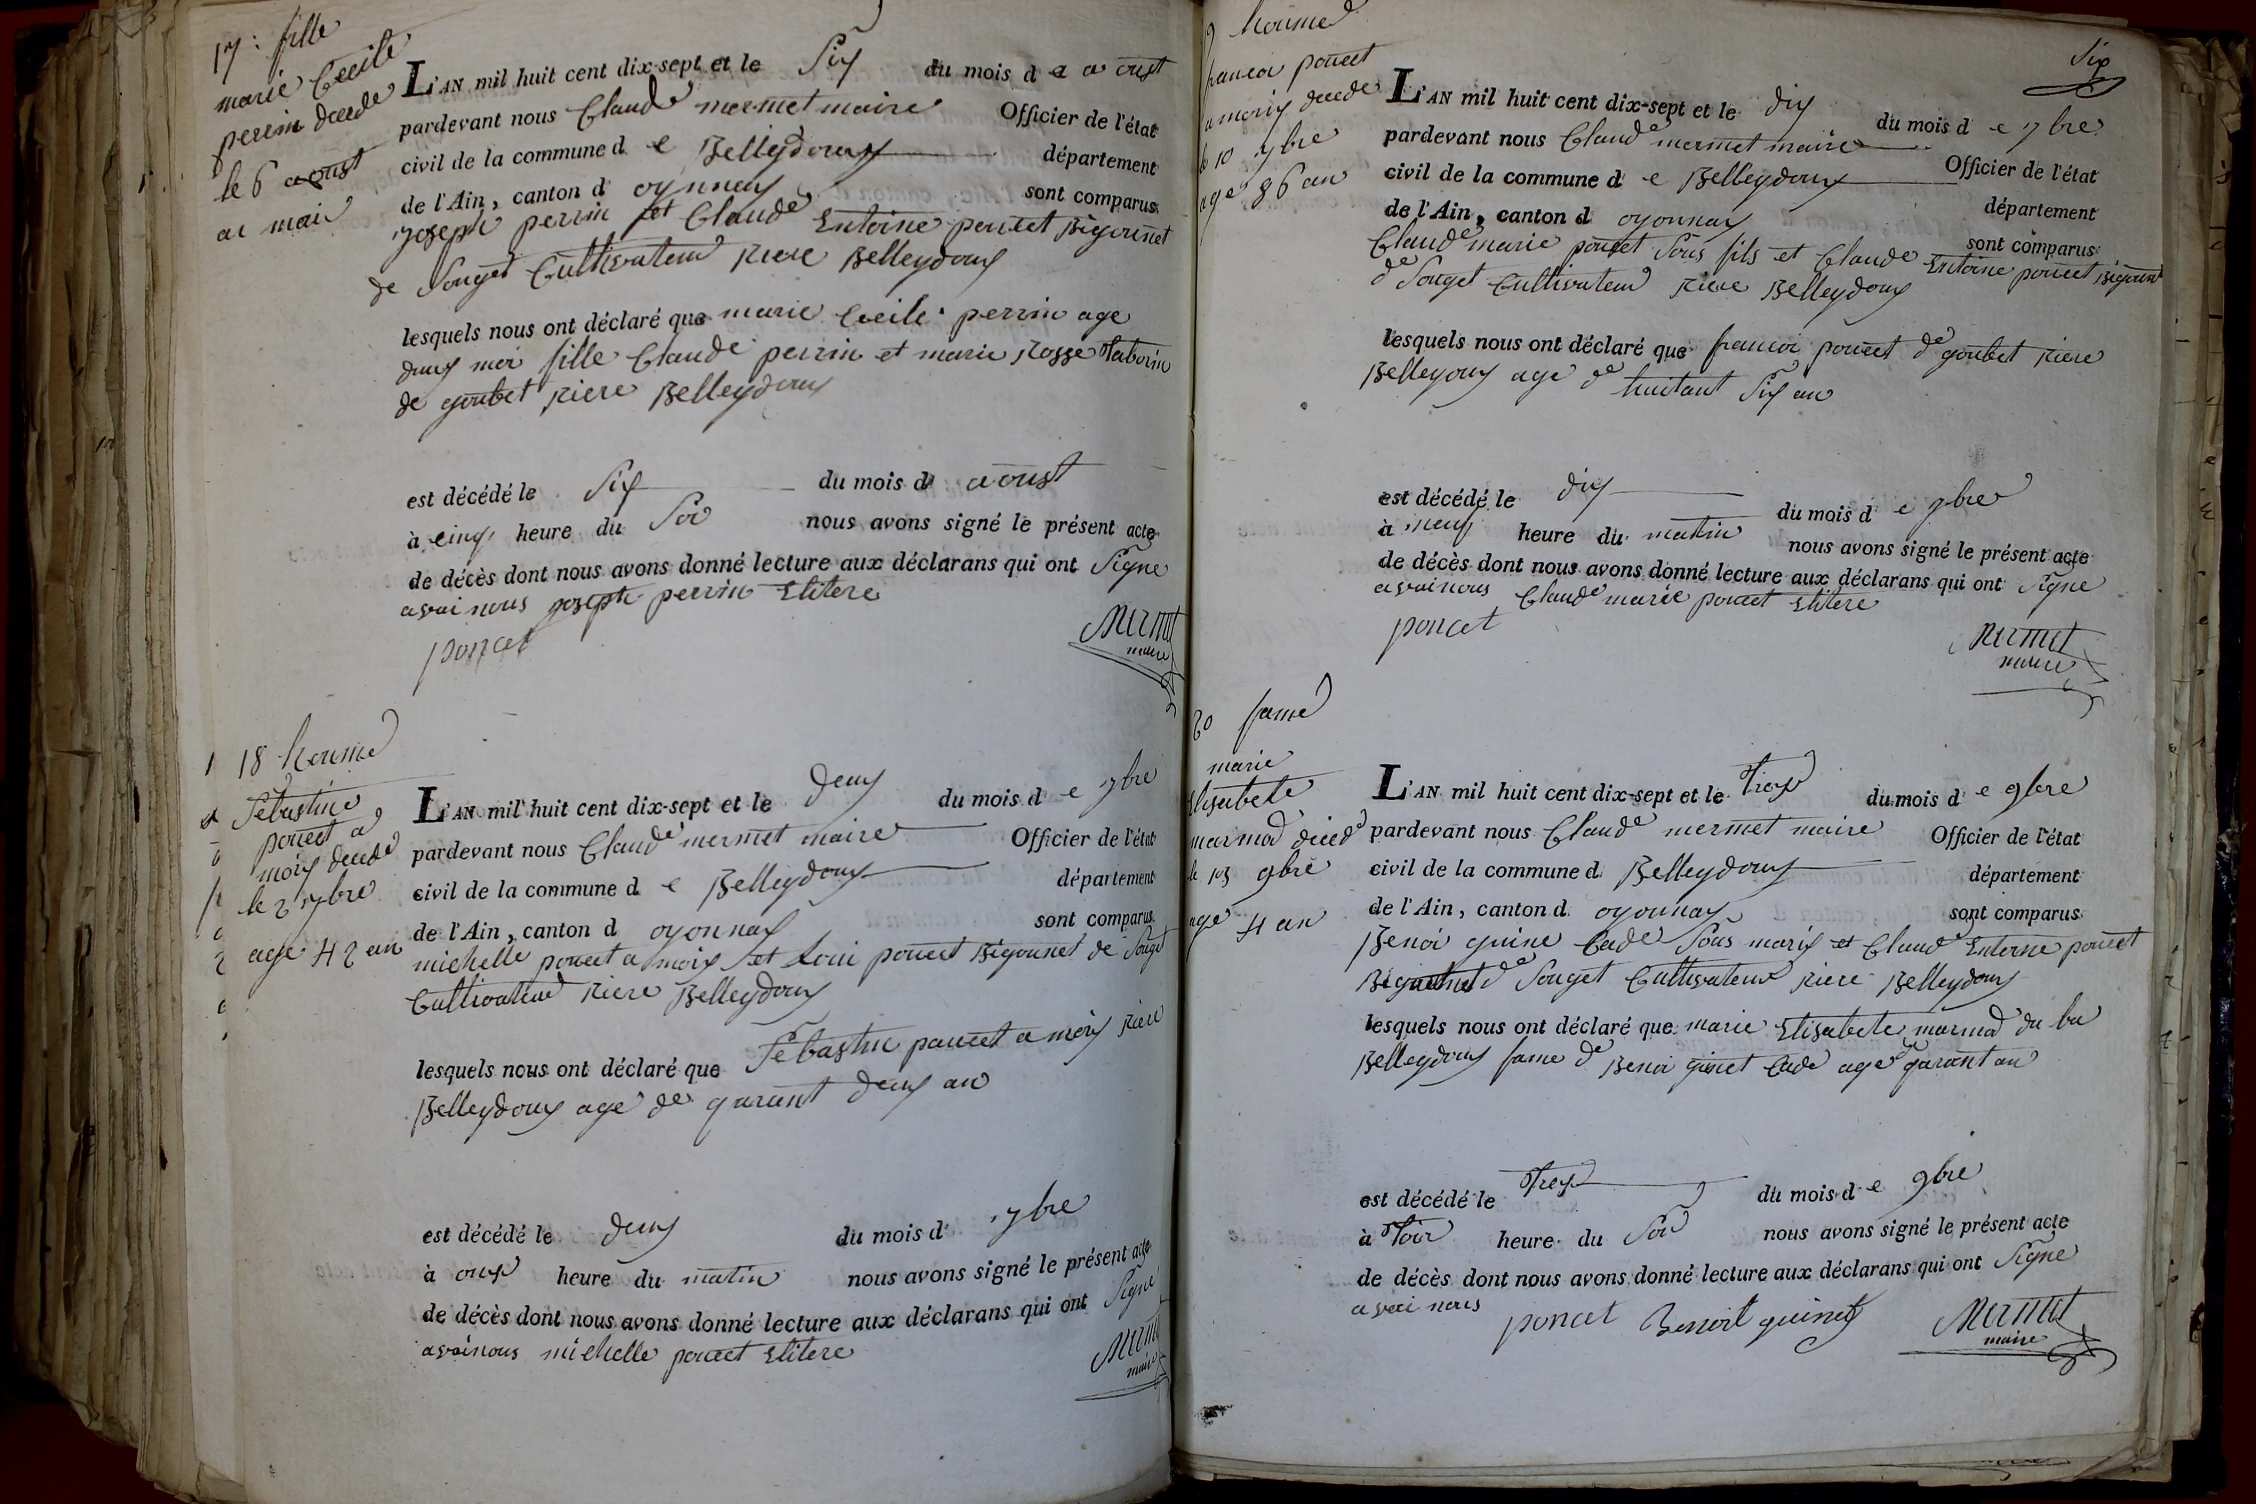 17: fille
marie Cecile
perrin decede
le 6 aoust
L'AN mil huit cent dix-sept et le Six du mois d a aoust
pardevant nous Claude mermet maire Officier de l'état
civil de la commune d e Belleydoux département
de l'Ain, canton d oyonnax sont comparus
joseph perrin et Claude Entoine poncet Bigounet
de Souget Cultivateur riere Belleydoux
lesquels nous ont déclaré que marie Cecile perrin age
deux moi fille Claude perrin et marie Rosse Taborin
de goubet riere Belleydoux
est décédé le Six du mois d aoust
à cinq heure du Soir nous avons signé le présent acte
de décès dont nous avons donné lecture aux déclarans qui ont Signe
avai nous joseph perrin Elitere
poncet
Mermet
maire
18 homme
Sebastine
poncet a
moix decede
le 2 7bre
age 42 an
L'AN mil huit cent dix-sept et le deux du mois d e 7bre
pardevant nous Claude mermet maire Officier de l'état
civil de la commune d e Belleydoux département
de l'Ain, canton d oyonnax sont comparus
michelle poncet a moix et Loui poncet Bigounet de Souget
Cultivateur riere Belleydoux
lesquels nous ont déclaré que Sebastine poncet a moix riere
Belleydoux age de quarant deux an
est décédé le deux du mois d 7bre
à onze heure du matin nous avons signé le présent acte
de décès dont nous avons donné lecture aux déclarans qui ont Signe
avai nous michelle poncet Elitere
Mermet
maire
Six
9 homme
francoi poncet
a moix decede
le 10 7bre
age 86 an
L'AN mil huit cent dix-sept et le dix du mois d e 7bre
pardevant nous Claude mermet maire Officier de l'état
civil de la commune d e Belleydoux département
de l'Ain, canton d oyonnax sont comparus
Claude marie poncet Sous fils et Claude Entoine poncet Bigounet
de Souget Cultivateur riere Belleydoux
lesquels nous ont déclaré que francoi poncet de goubet riere
Belleyoux age de huitant Six an
est décédé le dix du mois d e 7bre
à neuf heure du matin nous avons signé le présent acte
de décès dont nous avons donné lecture aux déclarans qui ont Signe
avai nous Claude marie poncet Elitere
poncet
Mermet
maire
20 fame
marie
Elisabete
marmod deced
le 13 9bre
age 41 an
L'AN mil huit cent dix-sept et le Trexe du mois d e 9bre
pardevant nous Claude mermet maire Officier de l'état
civil de la commune d Belleydoux département
de l'Ain, canton d oyonnax sont comparus
Benoi guine Cade Sous marix et Claude Entoine poncet
Bigounet de Souget Cultivateur riere Belleydoux
lesquels nous ont déclaré que marie Elisabete marmod du ba
Belleydoux fame de Benoi guinet Cade age de quarant an
est décédé le Trexe du mois d e 9bre
à Troir heure du Soir nous avons signé le présent acte
de décès dont nous avons donné lecture aux déclarans qui ont Signe
avai nous
poncet Benoit guinet
Mermet
maire